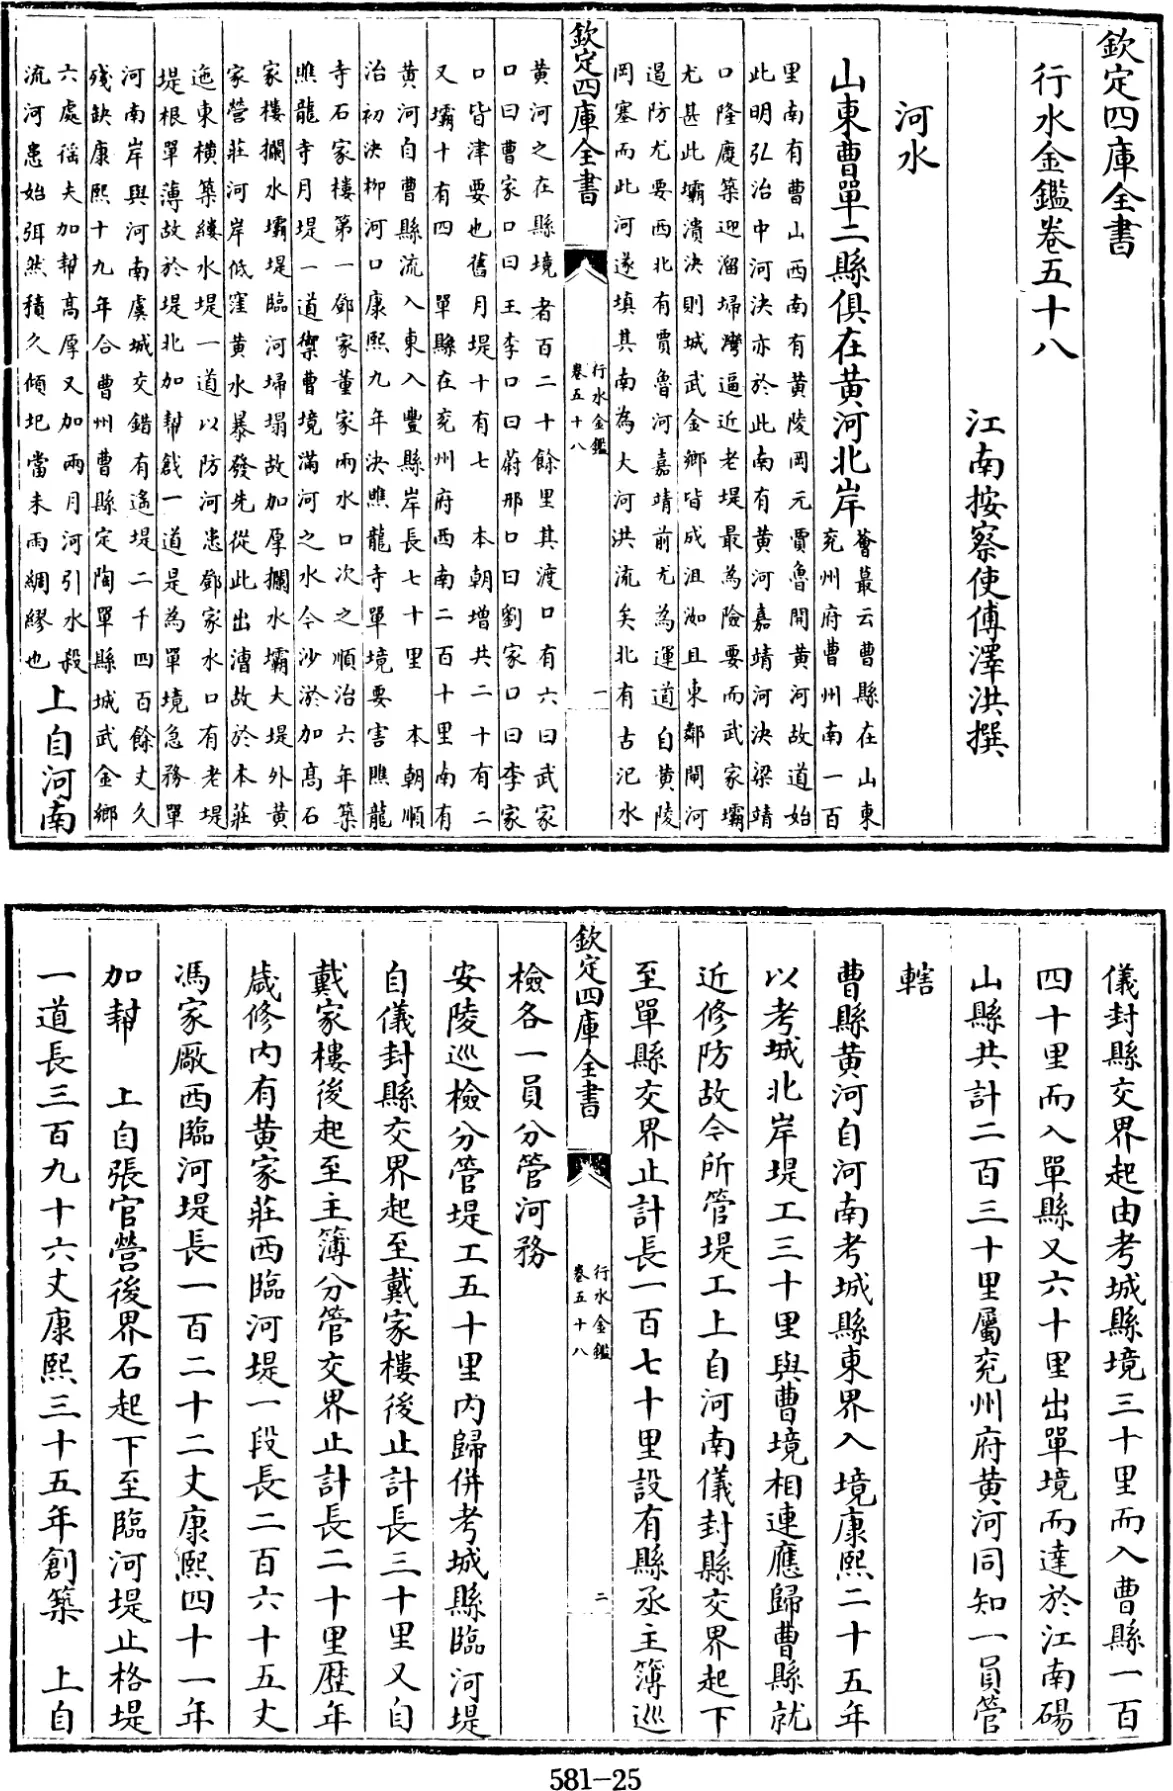 欽定四庫全書
行水金鑑卷五十八
江南按察使傅澤洪撰
河水
山東曹單二縣俱在黄河北岸
薈蕞云曹縣在山東
兖州府曹州南一百
里南有曹山西南有黄陵岡元賈魯開黄河故道始
此明弘治中河決亦於此南有黄河嘉靖河決梁靖
口隆慶築迎溜埽灣逼近老堤最為險要而武家壩
尤甚此壩潰決則城武金鄉皆成沮洳且東鄰閘河
遏防尤要西北有賈魯河嘉靖前尤為運道自黄陵
岡塞而此河遂填其南為大河洪流矣北有古汜水
欽定四庫全書
行水金鑑
卷五十八
一
黄河之在縣境者百二十餘里其渡口有六曰武家
口曰曹家口曰王李口曰蔚那口曰劉家口曰李家
口皆津要也舊月堤十有七 本朝增共二十有二
又壩十有四 單縣在兖州府西南二百十里南有
黄河自曹縣流入東入豐縣岸長七十里 本朝順
治初決柳河口康熙九年決瞧龍寺單境要害瞧龍
寺石家樓第一鄧家董家兩水口次之順治六年築
瞧龍寺月堤一道禦曹境滿河之水今沙淤加高石
家樓攔水壩堤臨河埽塌故加厚攔水壩大堤外黄
家營莊河岸低窪黄水暴發先從此出漕故於本莊
迤東横築縷水堤一道以防河患鄧家水口有老堤
堤根單薄故於堤北加幫戧一道是為單境急務單
河南岸與河南虞城交錯有遙堤二千四百餘丈久
殘缺康熙十九年合曹州曹縣定陶單縣城武金鄉
六處徭夫加幫高厚又加兩月河引水殺
流河患始弭然積久傾圮當未雨綢繆也
上自河南
儀封縣交界起由考城縣境三十里而入曹縣一百
四十里而入單縣又六十里出單境而達於江南碭
山縣共計二百三十里屬兖州府黄河同知一員管
轄
曹縣黄河自河南考城縣東界入 境康熙二十五年
以考城北岸堤工三十里與曹境相連應歸曹縣就
近修防故今所管堤工上自河南儀封縣交界起下
至單縣交界止計長一百七十里設有縣丞主簿巡
欽定四庫全書
行水金鑑
卷五十八
二
檢各一員分管河務
安陵巡檢分管堤工五十里内歸併考城縣臨河堤
自儀封縣交界起至戴家樓後止計長三十里又自
戴家樓後起至主簿分管交界止計長二十里歷年
歳修内有黄家莊西臨河堤一段長二百六十五丈
馮家廠西臨河堤長一百二十二丈康熙四十一年
加幫 上自張官營後界石起下至臨河堤止格堤
一道長三百九十六丈康熙三十五年創築 上自
581-25